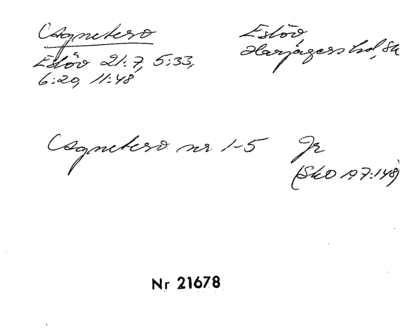 Agnetero Eslöv,
Harjagers hd, Sk
Eslöv 21:7, 5:33,
6:20, 11:48
Agnetero nr 1-5 Jr
(SkO A7:148)
Nr 21678